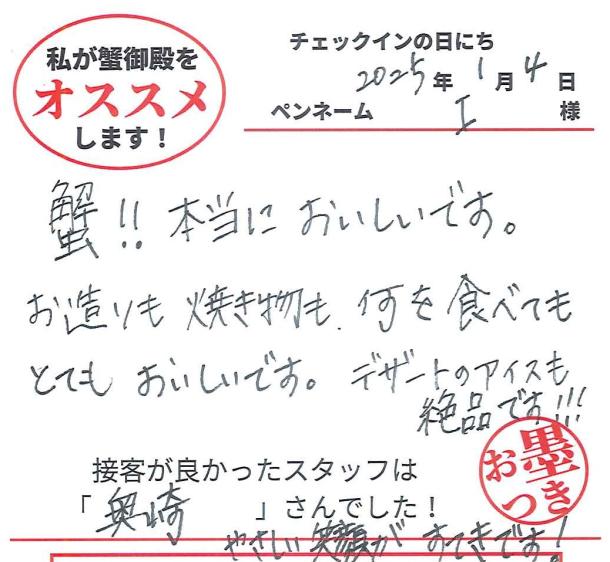 私が蟹御殿を
オススメ
します!
チェックインの日にち
2025年1月4日
ペンネーム I 様
蟹!!本当においしいです。
お造りも焼き物も、何を食べても
とてもおいしいです。デザートのアイスも
絶品です!!!
接客が良かったスタッフは
「奥崎」さんでした!
やさしい笑顔がすてきです!
お墨つき